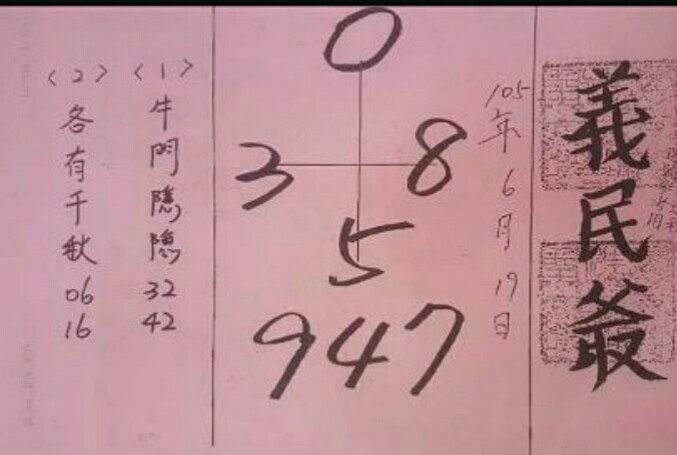 義民爺
105年6月19日
0
3 8
5
947
<1> 牛門隱隱 32 42
<2> 各有千秋 06 16